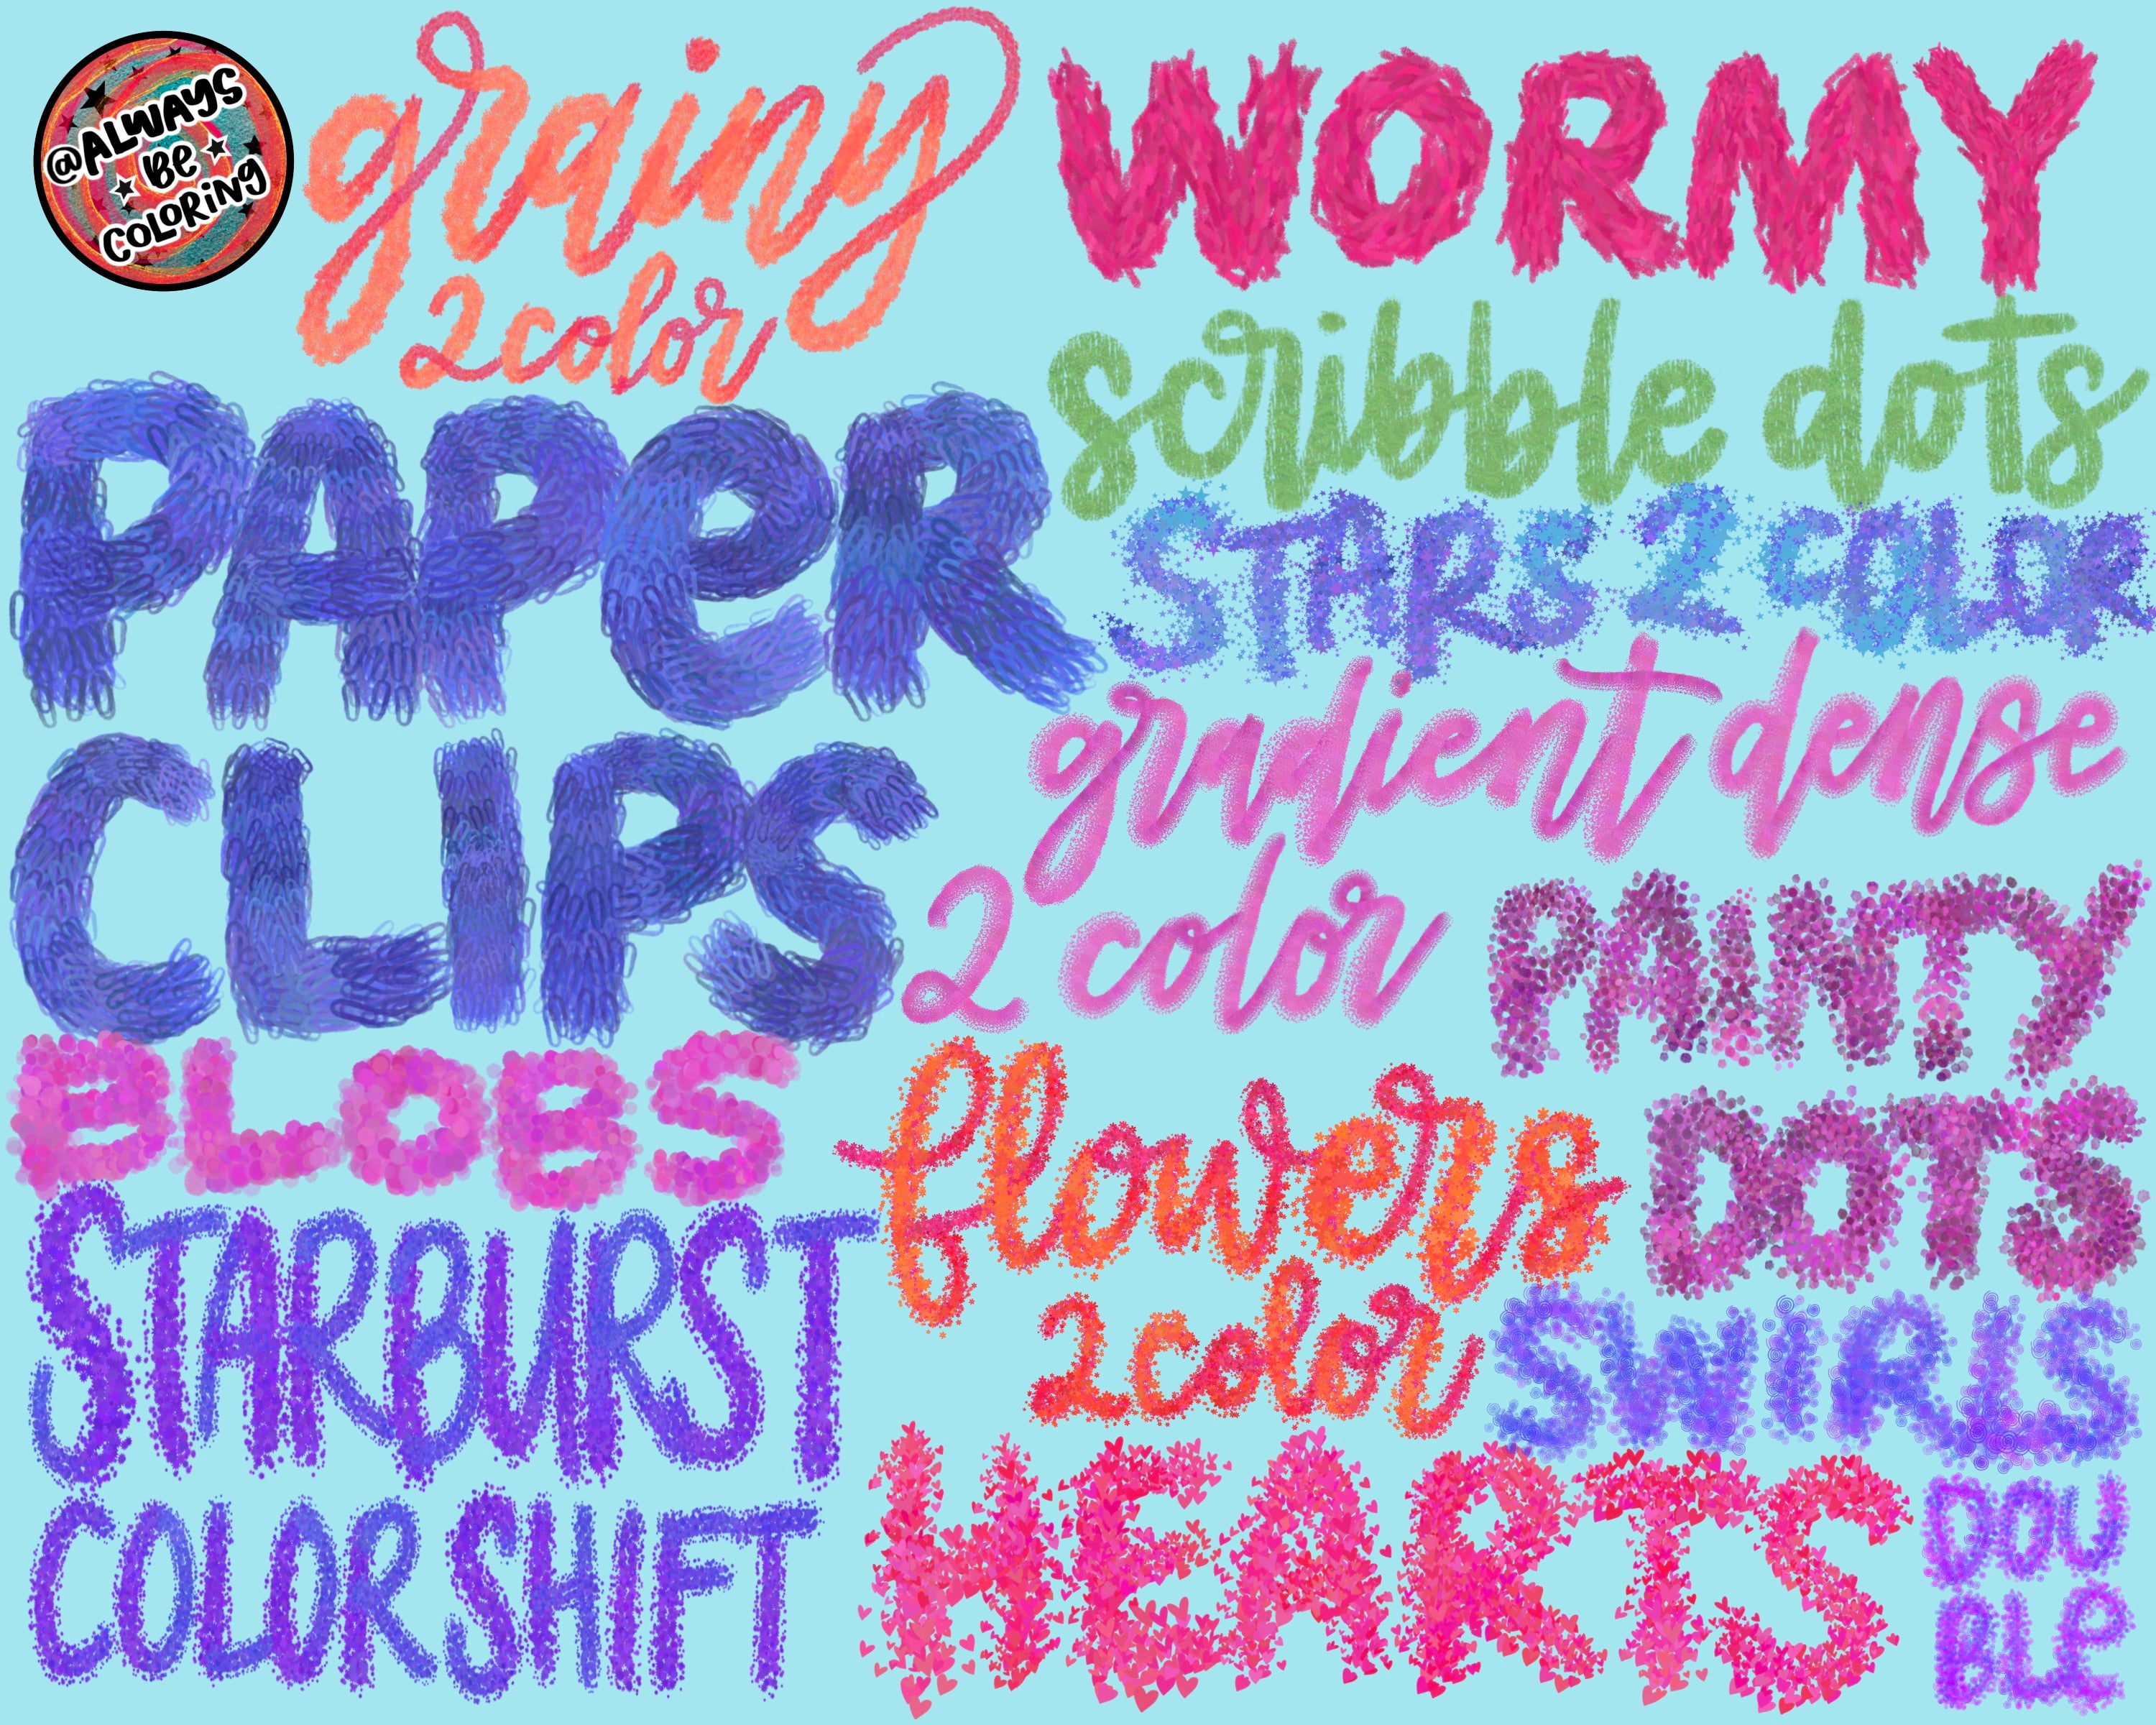 @ALWAYS
BE
COLORING
grainy
2 color
WORMY
scribble dots
PAPeR
CLIPS
STARS 2 COLOR
gradient dense
2 color
PAINTY
DOTS
BLOBS
flowers
2 color
STARBURST
COLOR SHIFT
SWIRLS
DOU
BLE
HEARTS